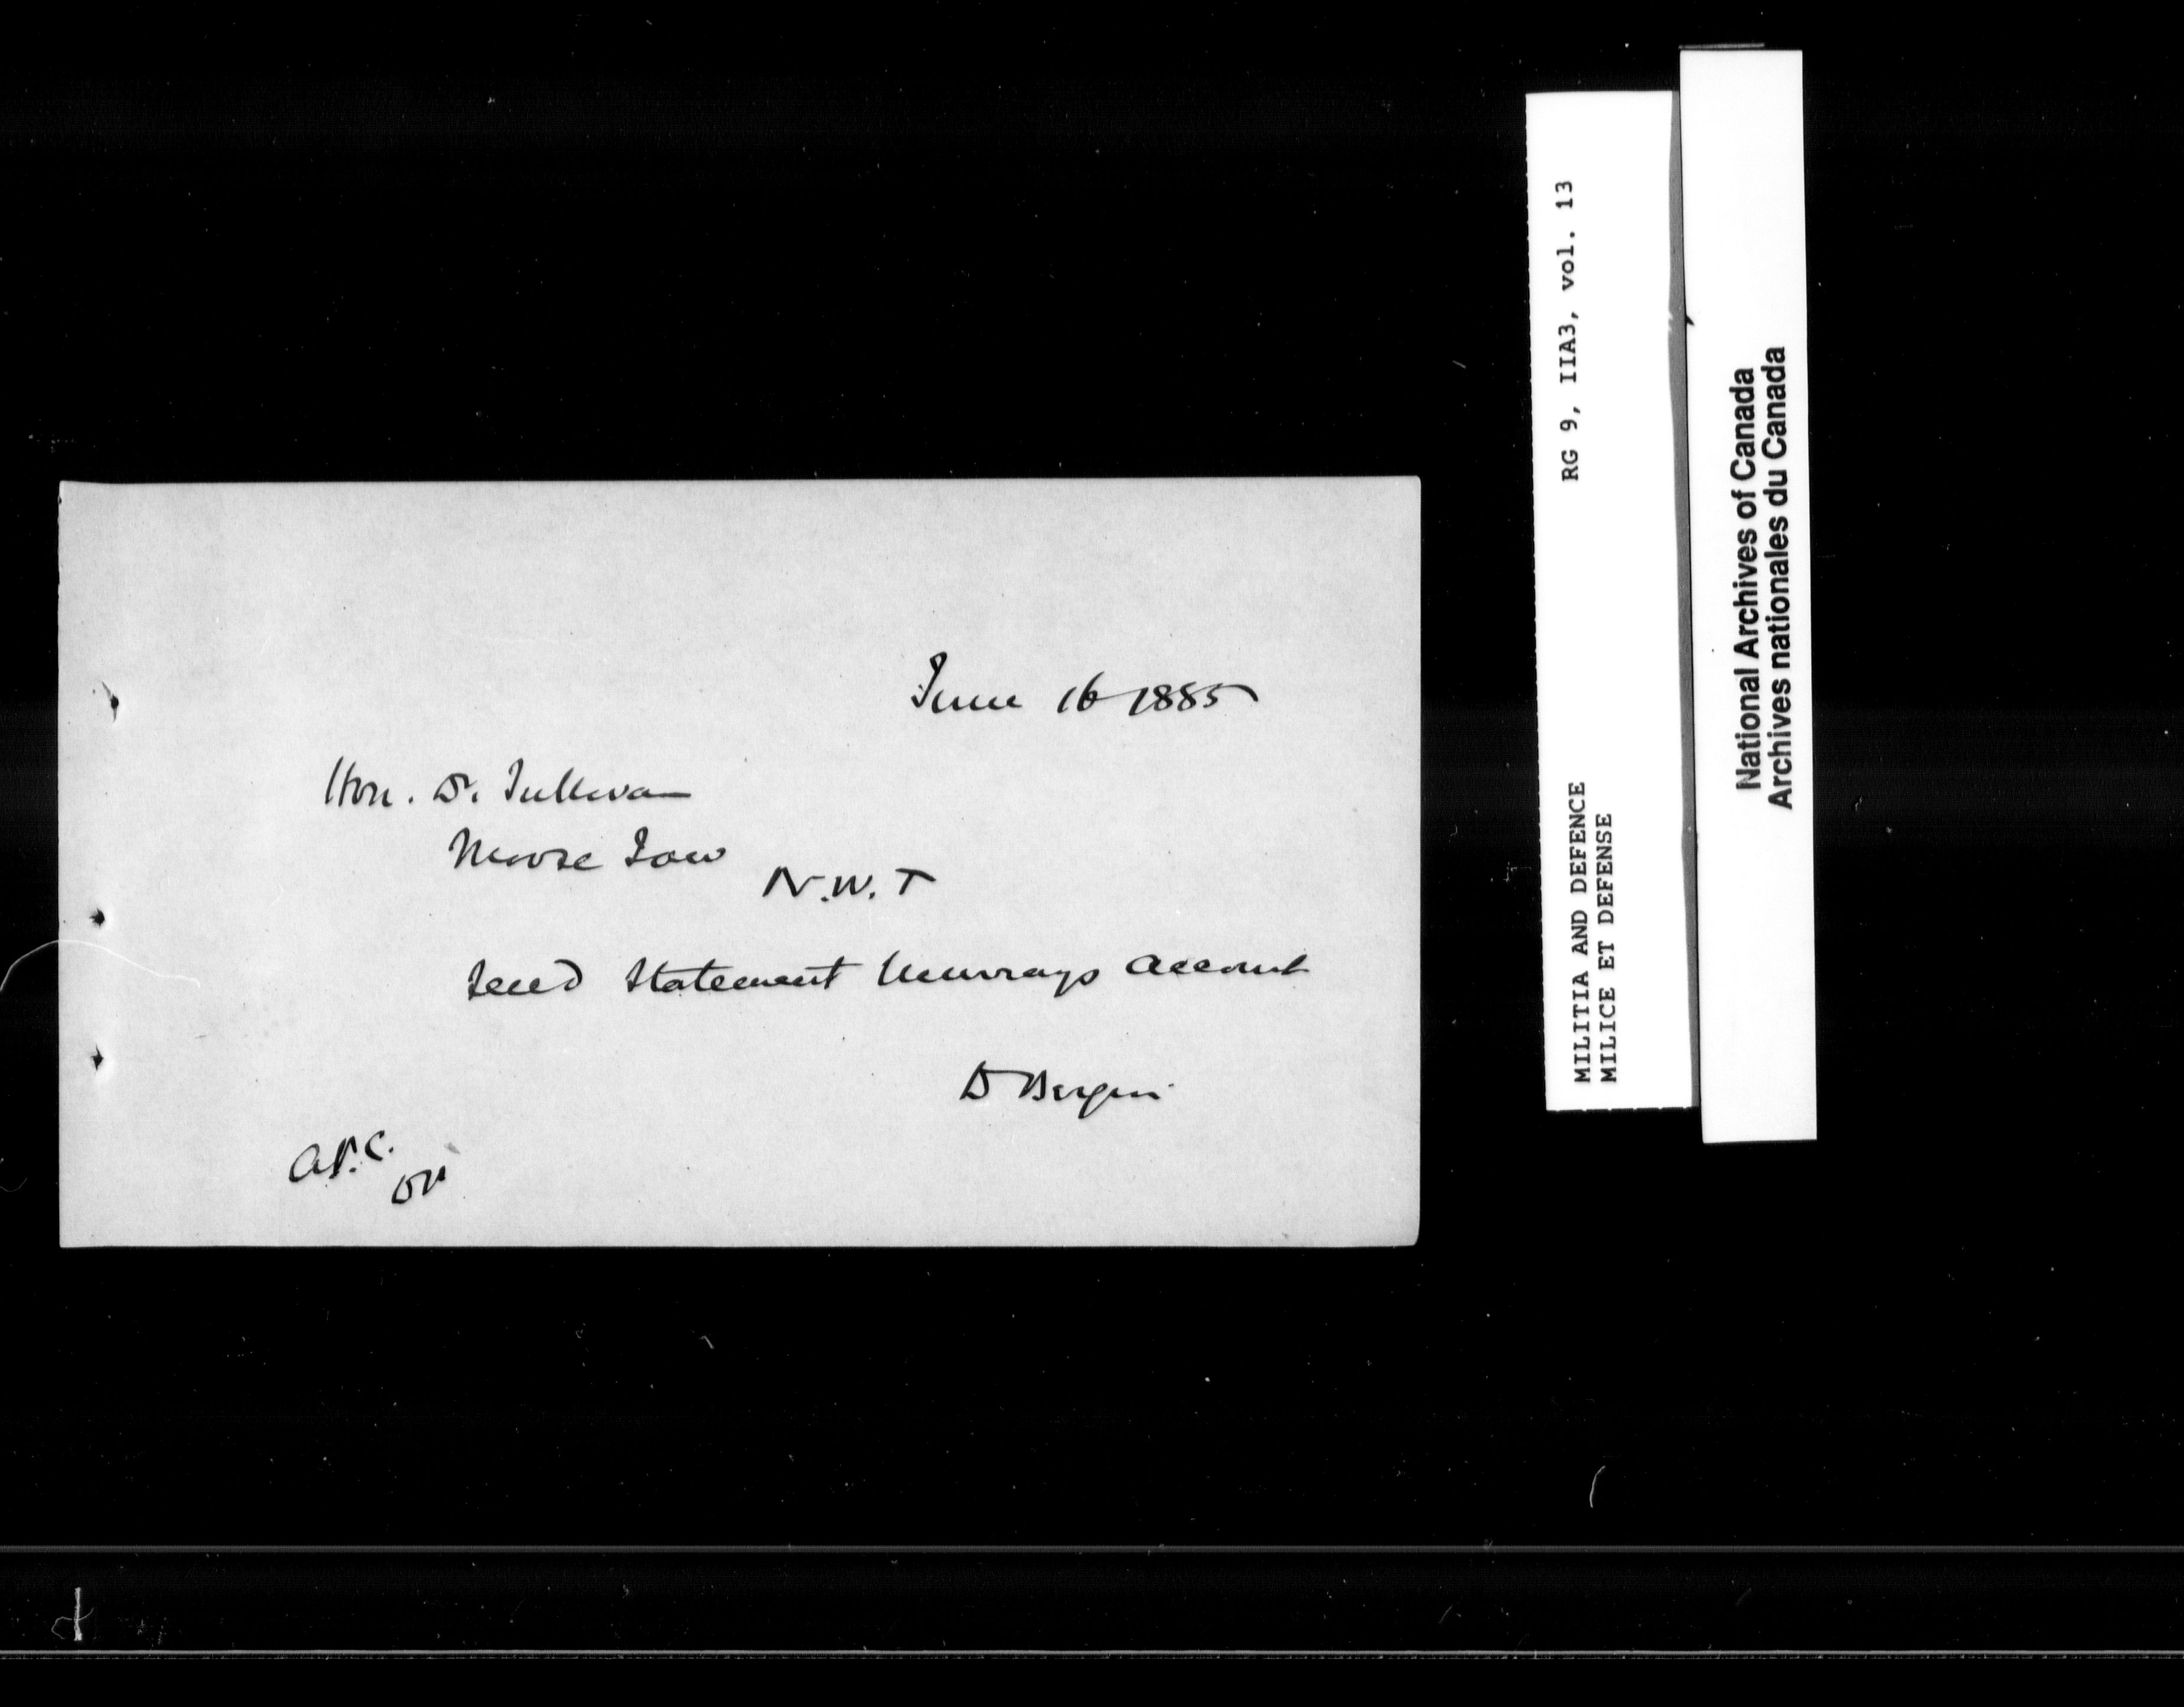 June 16 1885
Hon. Dr. Sullivan
Moose Jaw
N.W.T
Send Statement Murrays Account
D Bergin
RG 9, IIA3, vol. 13
MILITIA AND DEFENCE
MILICE ET DEFENSE
National Archives of Canada
Archives nationales du Canada